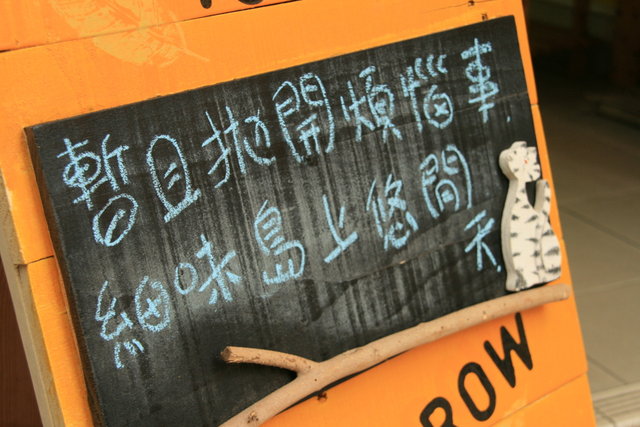 暫且拋開煩惱事.
細味島上悠閒天.
ROW